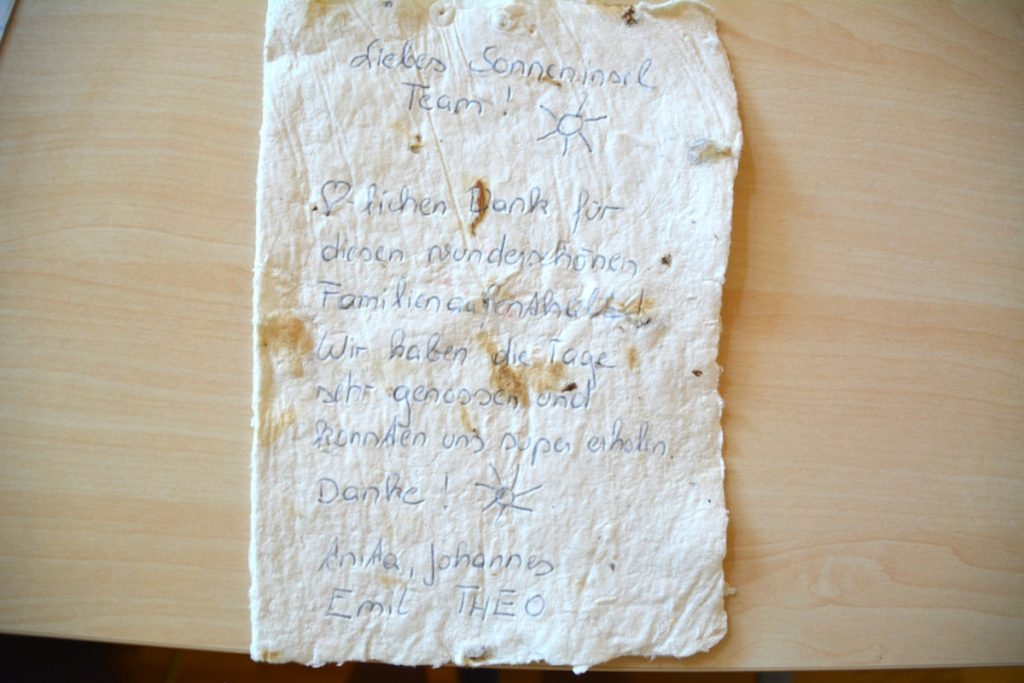 Liebes Sonneninsel
Team!
♡-lichen Dank für
diesen wunderschönen
Familienaufenthalt!
Wir haben die Tage
sehr genossen und
konnten uns super erholen.
Danke!
Anita, Johannes
Emil THEO